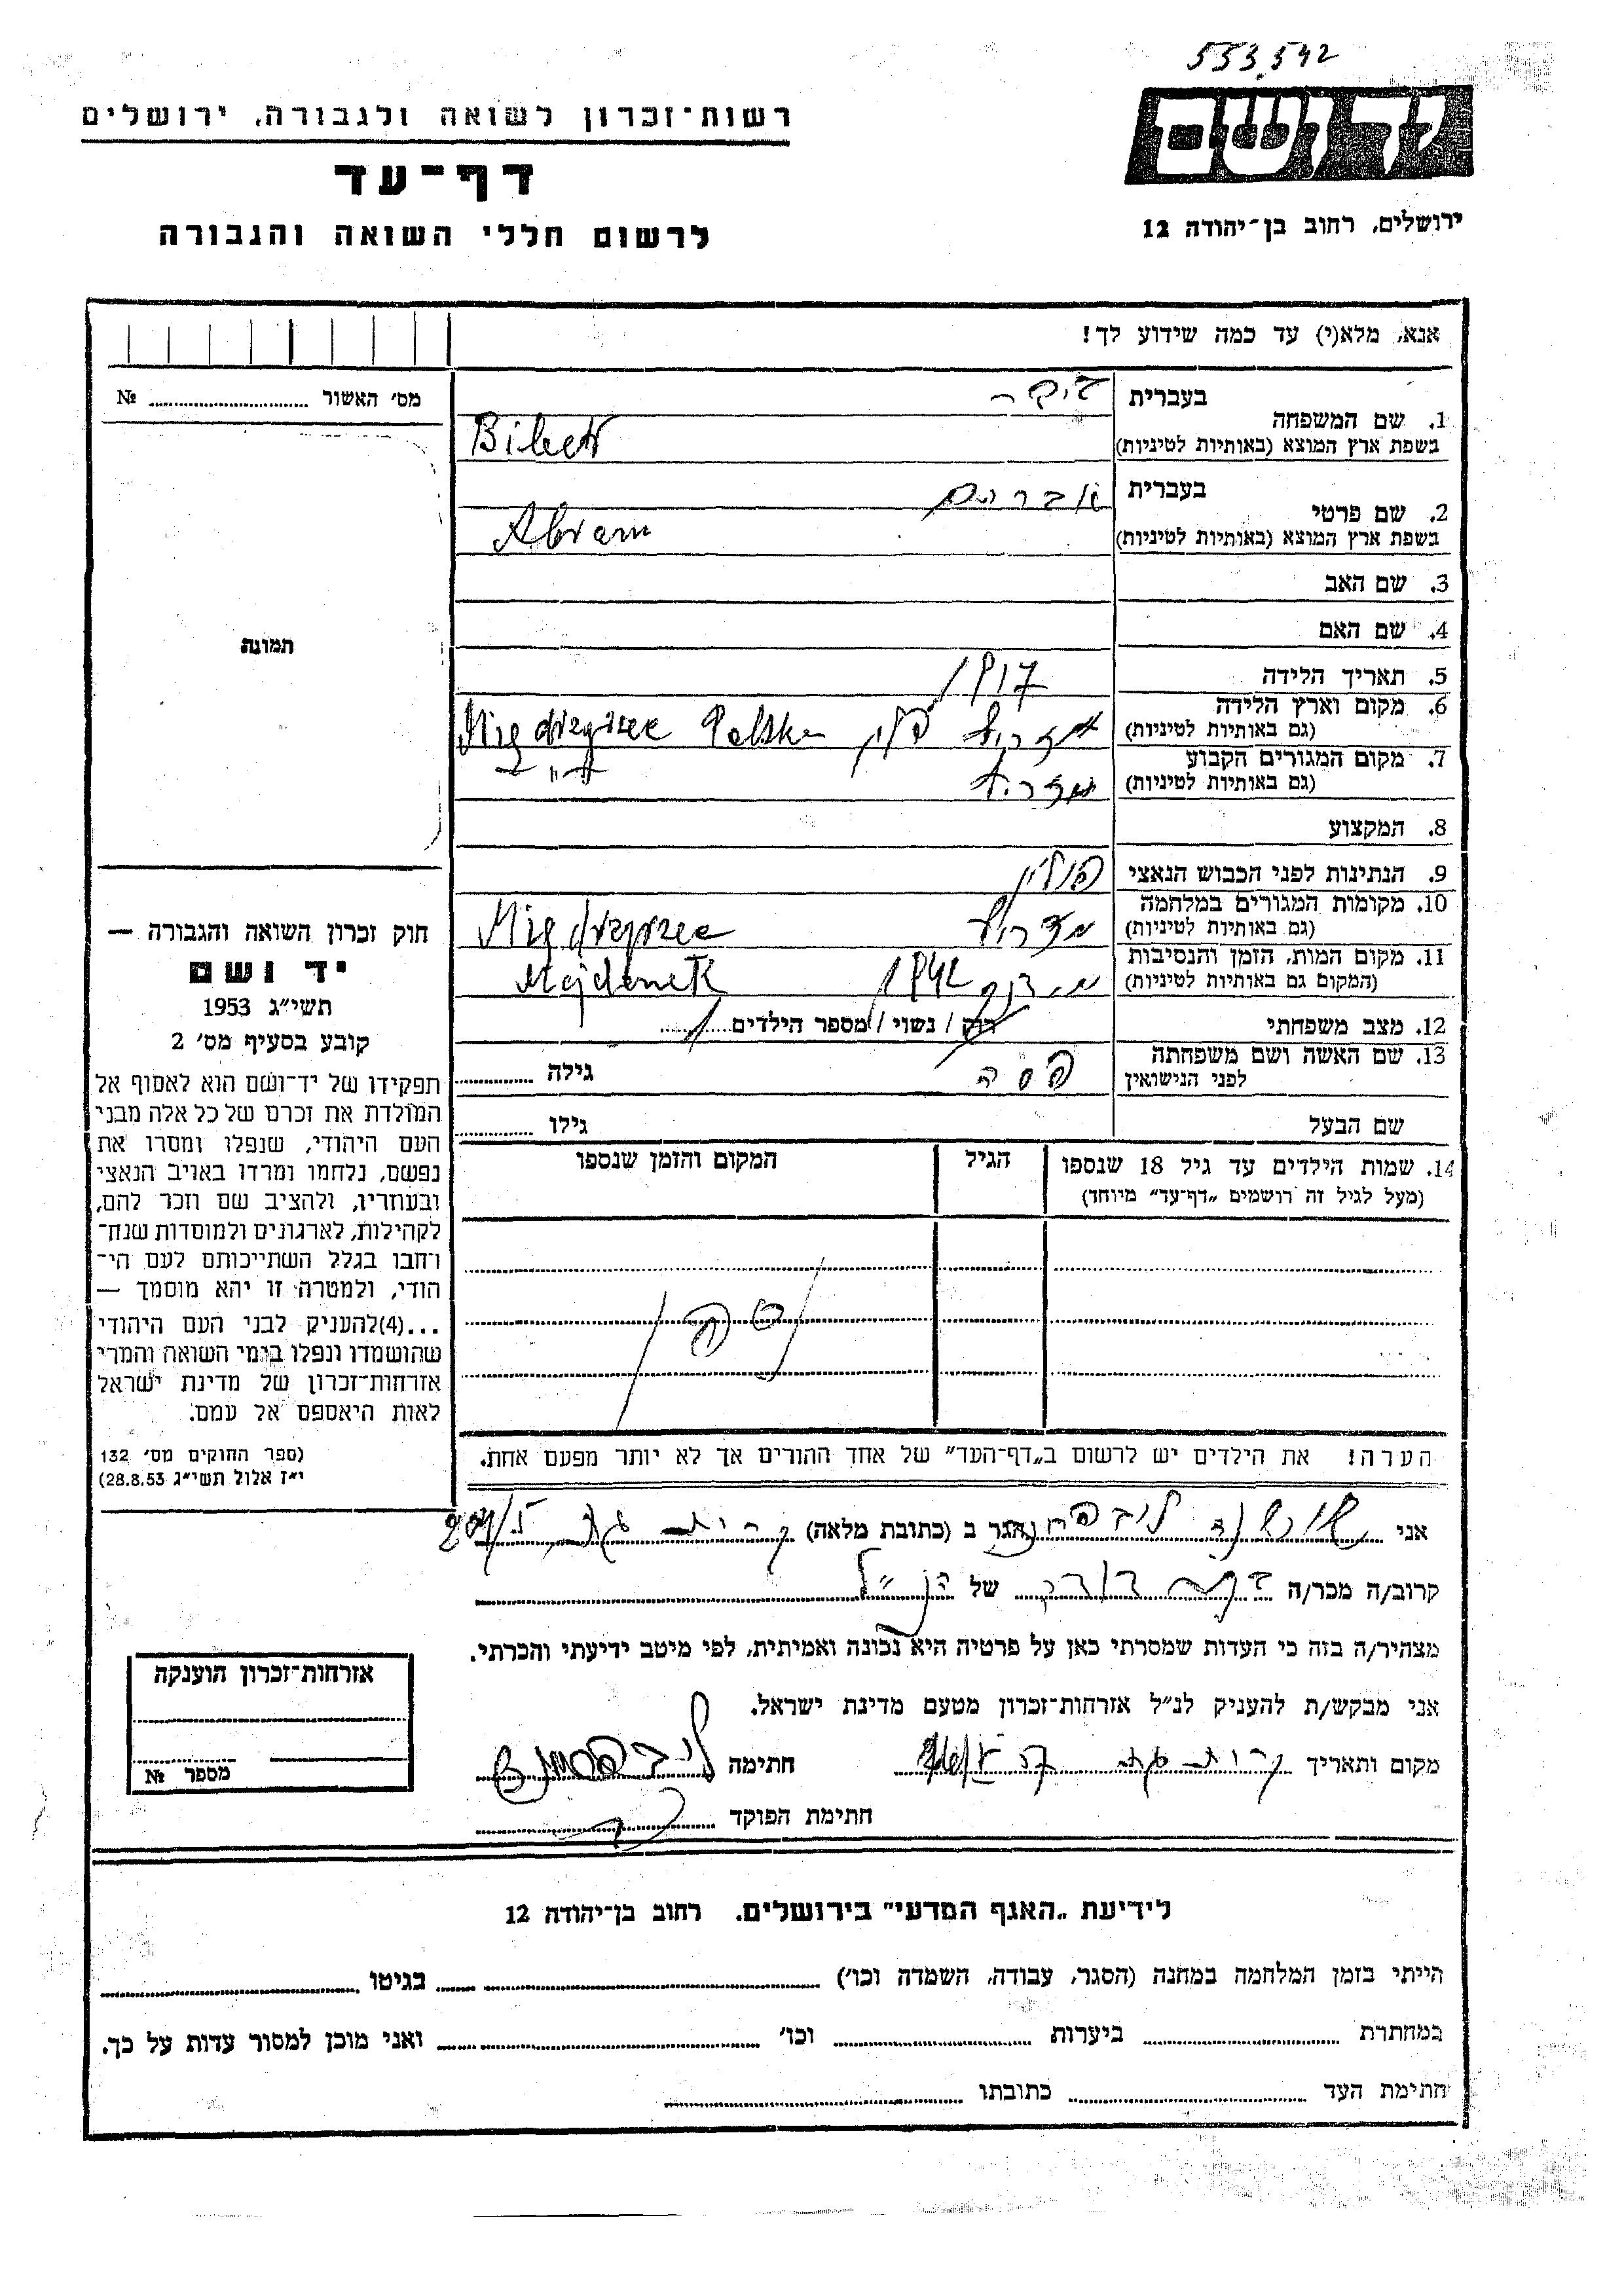 553.592
יד ושם
ירושלים, רחוב בן־יהודה 12
רשות־זכרון לשואה ולגבורה, ירושלים
דף־עד
לרשום חללי השואה והגבורה
אנא, מלא(י) עד כמה שידוע לך!
1. שם המשפחה
בעברית
בשפת ארץ המוצא (באותיות לטיניות)
2. שם פרטי
בעברית אברהם
בשפת ארץ המוצא (באותיות לטיניות) Abram
3. שם האב
4. שם האם
5. תאריך הלידה 1917
6. מקום וארץ הלידה
(גם באותיות לטיניות) מזריץ פולין Polska
7. מקום המגורים הקבוע
(גם באותיות לטיניות) מזריץ
8. המקצוע
9. הנתינות לפני הכבוש הנאצי פולין
10. מקומות המגורים במלחמה
(גם באותיות לטיניות) מזריץ
11. מקום המות, הזמן והנסיבות
(המקום גם באותיות לטיניות) 1942 Majdanek
12. מצב משפחתי רוק / נשוי / מספר הילדים
13. שם האשה ושם משפחתה
לפני הנישואין פסה גילה
שם הבעל גילו
14. שמות הילדים עד גיל 18 שנספו
(מעל לגיל זה רושמים „דף־עד” מיוחד)
הגיל
המקום והזמן שנספו
הערה! את הילדים יש לרשום ב„דף־העד” של אחד ההורים אך לא יותר מפעם אחת.
מס׳ האשור №
תמונה
חוק זכרון השואה והגבורה —
יד ושם
תשי״ג 1953
קובע בסעיף מס׳ 2
תפקידו של יד־ושם הוא לאסוף אל
המולדת את זכרם של כל אלה מבני
העם היהודי, שנפלו ומסרו את
נפשם, נלחמו ומרדו באויב הנאצי
ובעוזריו, ולהציב שם וזכר להם,
לקהילות, לארגונים ולמוסדות שנח־
רחבו בגלל השתייכותם לעם הי־
הודי, ולמטרה זו יהא מוסמך —
...(4)להעניק לבני העם היהודי
שהושמדו ונפלו בימי השואה והמרי
אזרחות־זכרון של מדינת ישראל
לאות היאספם אל עמם.
(ספר החוקים מס׳ 132
י״ז אלול תשי״ג 28.8.53)
אני שושנה הגר ב (כתובת מלאה) קרית גת
קרוב/ה מכר/ה של הנ״ל
מצהיר/ה בזה כי העדות שמסרתי כאן על פרטיה היא נכונה ואמיתית, לפי מיטב ידיעתי והכרתי.
אני מבקש/ת להעניק לנ״ל אזרחות־זכרון מטעם מדינת ישראל.
מקום ותאריך קרית גת חתימה
חתימת הפוקד
אזרחות־זכרון הוענקה
מספר №
לידיעת „האגף המדעי” בירושלים. רחוב בן־יהודה 12
הייתי בזמן המלחמה במחנה (הסגר, עבודה, השמדה וכו׳) בגיטו
במחתרת ביערות וכו׳ ואני מוכן למסור עדות על כך.
חתימת העד כתובתו